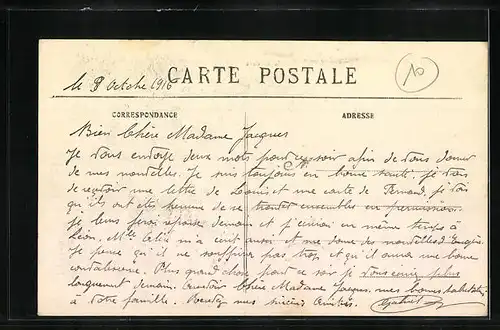 le 8 Octobre 1916
CARTE POSTALE
10
CORRESPONDANCE
ADRESSE
Bien Chère Madame Jacques
Je vous envoie deux mots pour ce soir afin de vous donner
de mes nouvelles. Je suis toujours en bonne santé. je viens
de recevoir une lettre de Louis et une carte de Fernand, je vois
qu'ils ont été de se trouver ensembles en permission.
je leurs ferai réponse demain et j'écrirai en même temps à
Léon. Mlle m'a écrit aussi et me donne des nouvelles d'Eugène.
Je pense qu'il ne souffrira pas trop et qu'il aura une bonne
convalescence. Plus grand chose pour ce soir je vous écrirai plus
longuement demain. Chère Madame Jacques mes bonnes
à votre famille. Recevez mes sincères Amitiés.
Gabriel